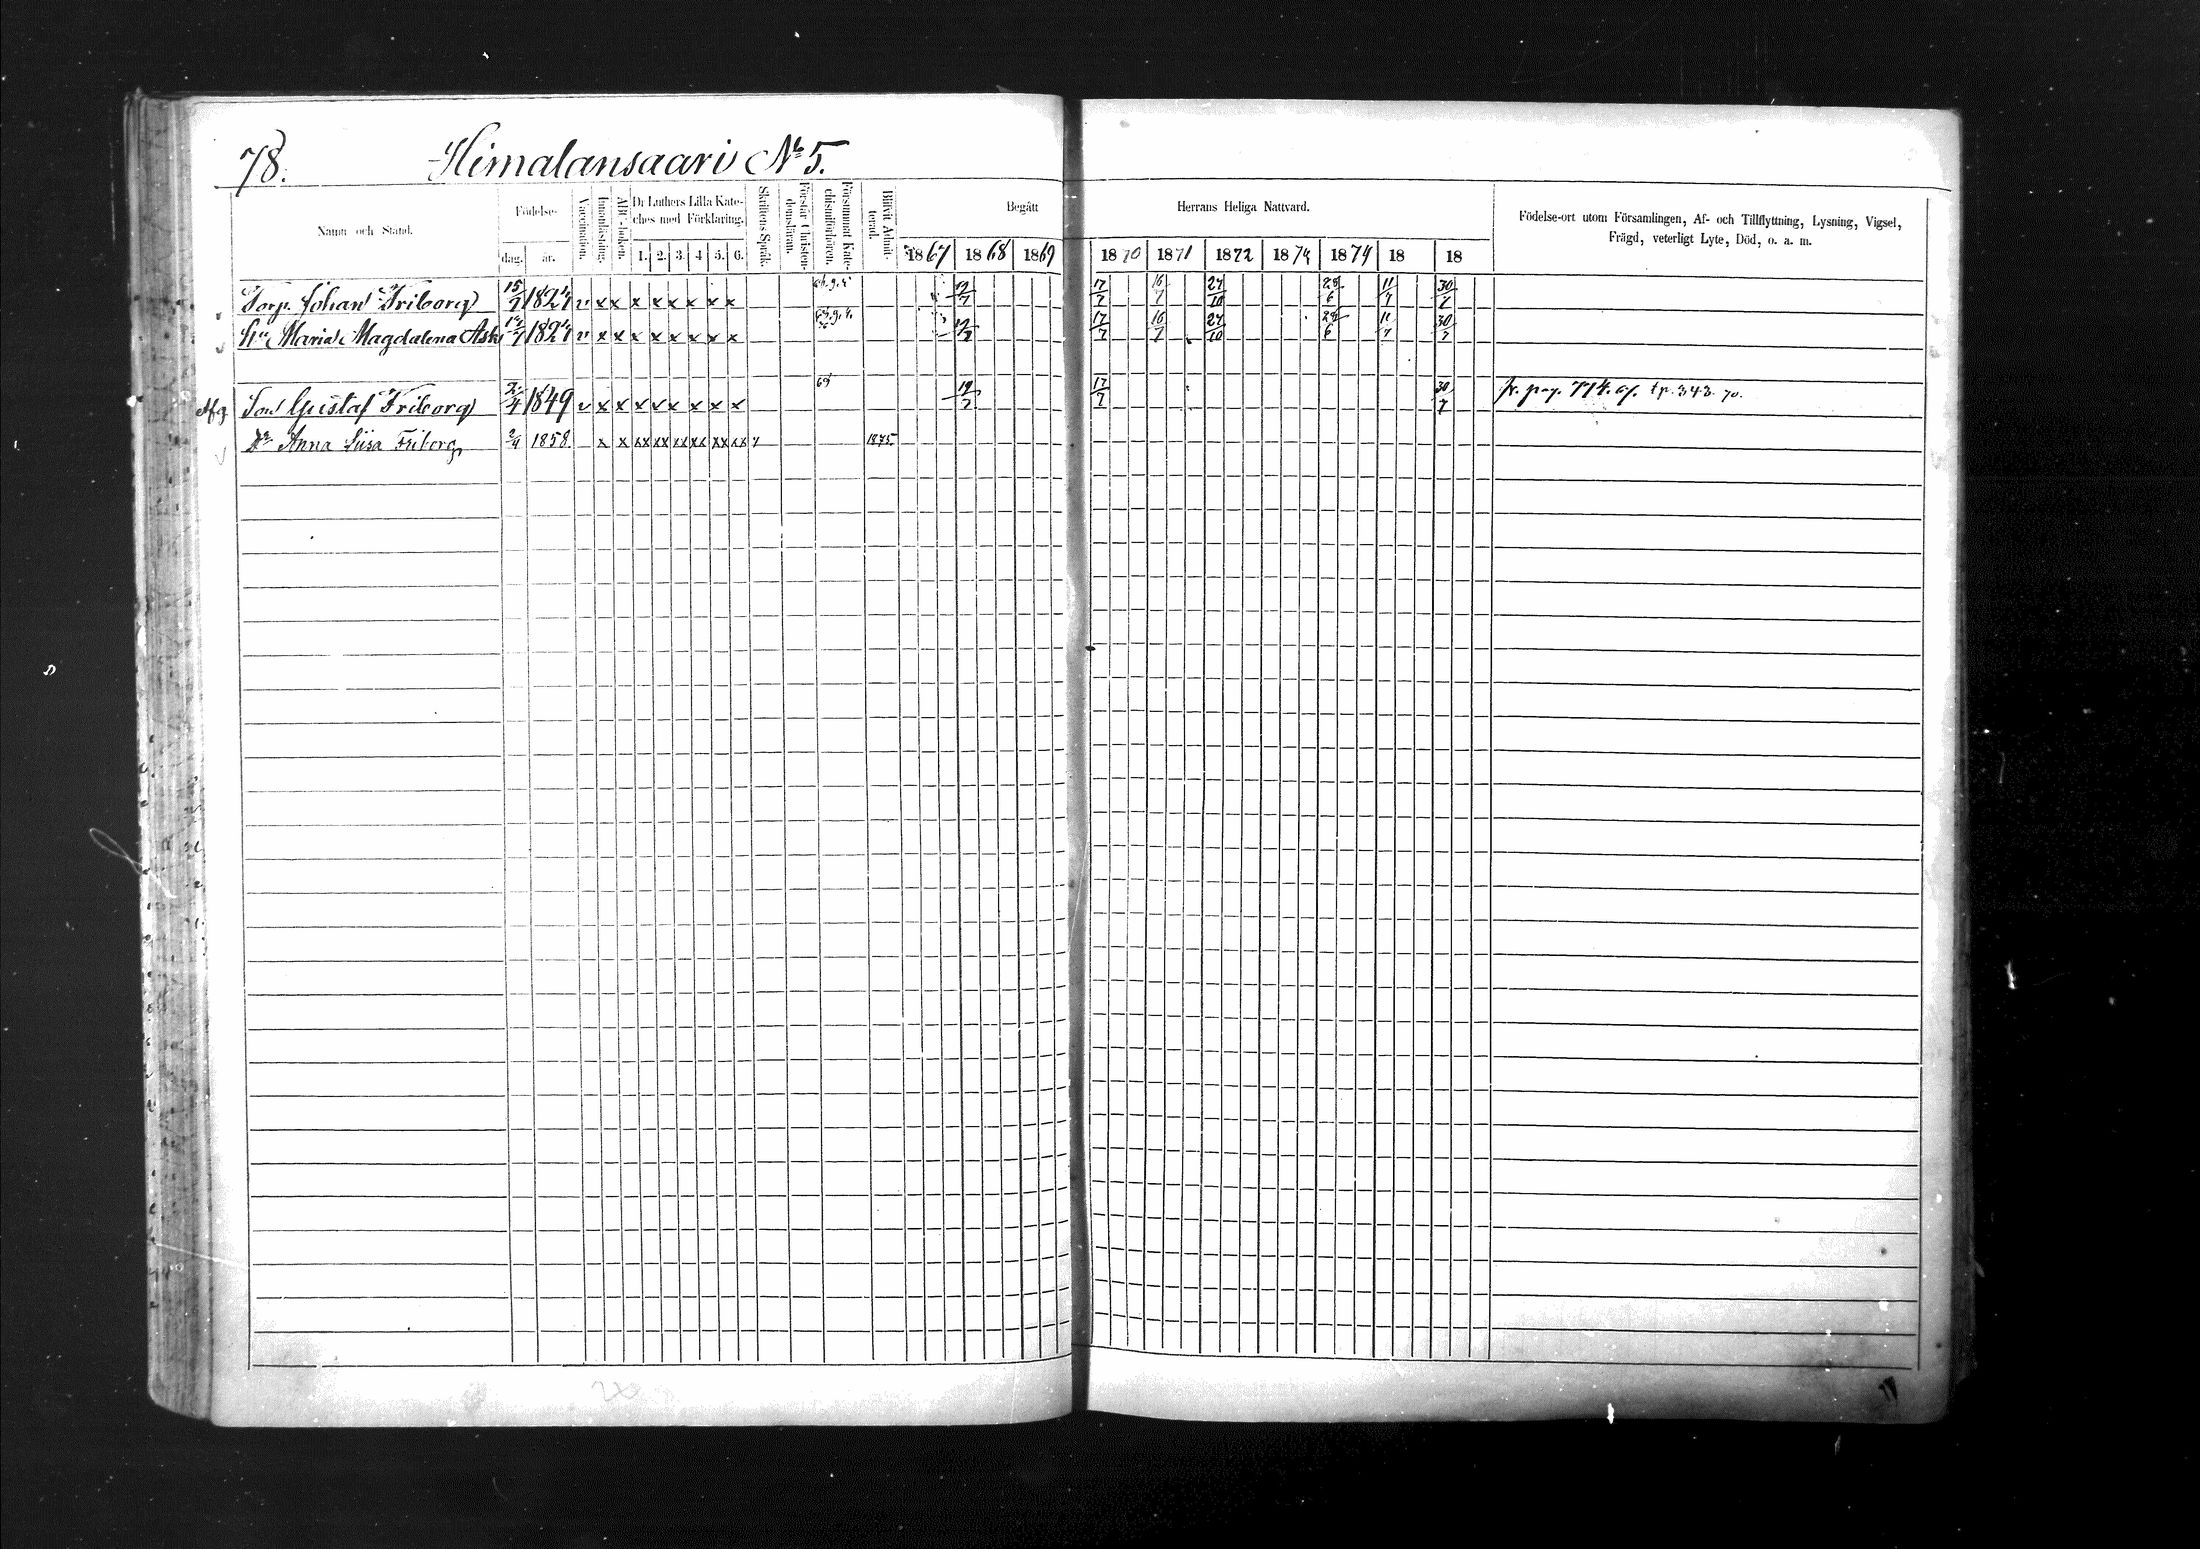 78. Himalansaari No 5.
Namn och Stånd.
Födelse-
dag. år.
Vaccination.
Innanläsning.
ABC-boken.
Dr Luthers Lilla Kate-
ches med Förklaring.
1. 2. 3. 4 5. 6.
Skriftens Språk.
Förstår Christen-
domsläran.
Försummat Kate-
chismiförhören.
Blifvit Admit-
terad.
Begått Herrans Heliga Nattvard.
1867 1868 1869 1870 1871 1872 1874 1874 18 18
Födelse-ort utom Församlingen, Af- och Tillflyttning, Lysning, Vigsel,
Frägd, veterligt Lyte, Död, o. a. m.
Torp. Johan Friborg 15/7 1824 v x x x x x x x x 19/7 17/7 16/7 27/10 28/6 11/7 30/7
Hu Maria Magdalena Ask 1824 v x x x x x x x x 19/7 17/7 16/7 27/10 28/6 11/7 30/7
Afg Son Gustaf Friborg 1849 v x x x x x x x x 69 19/7 17/7 30/7 fr. pag. 774. 67. t p. 343. 70.
Dr Anna Liisa Friborg 2/9 1858 x x xx xx xx xx xx xx 1875.